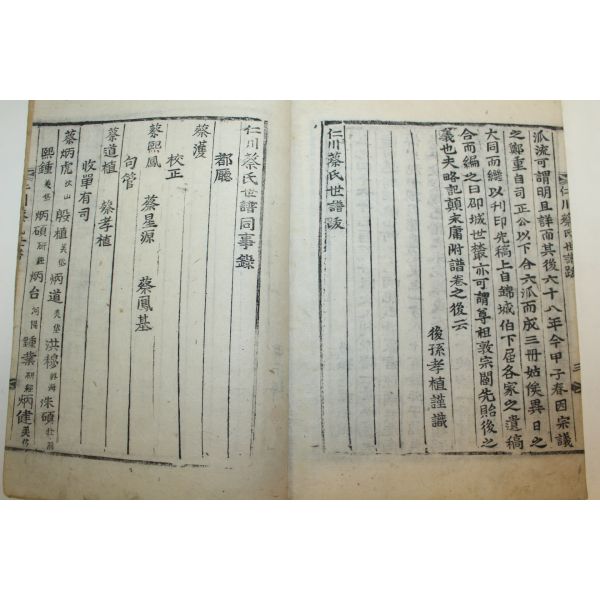 仁川蔡氏世譜跋
派流可謂明且詳而其後六十八年今甲子春因宗議
之鄭重自司正公以下合六派而成三冊姑俟異日之
大同而繼以刊印先稿上自錦城伯下屆各家之遺稿
合而編之曰卽城世藂亦可謂尊祖敦宗闡先貽後之
義也夫略記顛末庸附譜卷之後云
後孫孝植謹識
仁川蔡氏世譜跋
仁川蔡氏世譜同事錄
都廳
蔡濩
校正
蔡熙鳳 蔡星源 蔡鳳基
句管
蔡道植 蔡孝植
收單有司
蔡炳虎 殷植 炳道 洪穆 珠碩
熙鍾 炳碩 炳台 鍾業 炳健